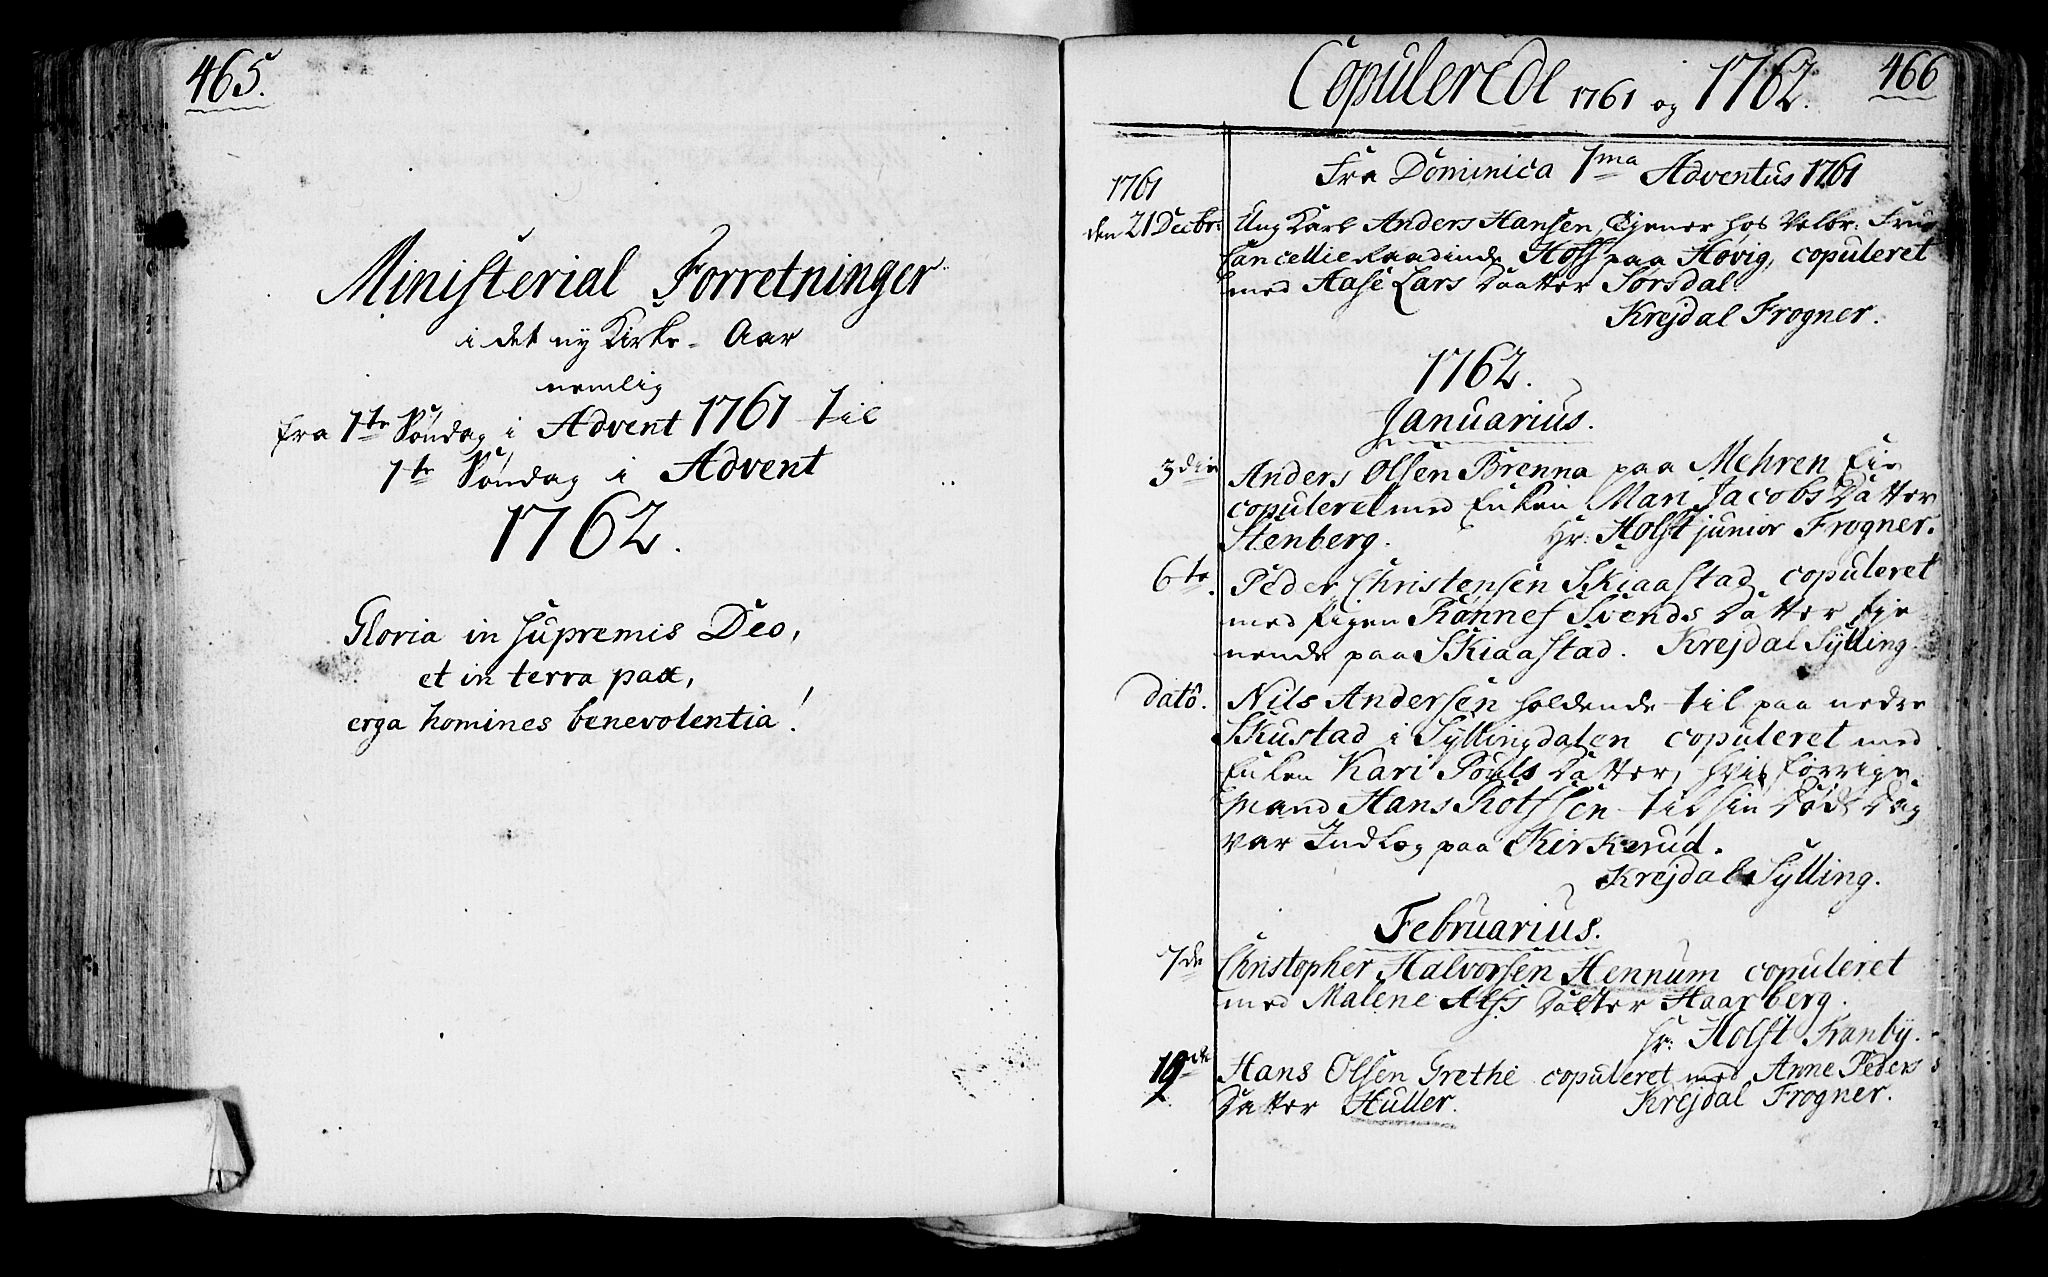 465.
Ministerial Forretninger
i det ny Kirke-Aar
nemlig
fra 1te Søndag i Advent 1761 til
1te Søndag i Advent
1762.
Gloria in supremis Deo,
et in terra pax,
erga homines benevolentia!
Copulerede 1761 og 1762.
466
Fra Dominica 1ma Adventus 1761
1761
den 21 Decbr: Ung Karl Anders Hansen, Tjener hos Velbr: Frue
Cancellieraadinde Hoff paa Høvig, copuleret
med Aase Lars Daatter Sørsdal
Krejdal Frogner.
1762.
Januarius.
3die Anders Olsen Brenna paa Mehren Eie
copuleret med Enken Mari Jacobs Datter
Stenberg. Hr: Holst junior Frogner.
6te. Peder Christensen Skiaastad copuleret
med Pigen Rønnef Svends Datter tje-
nende paa Skiaastad. Krejdal Sylling
dato. Nils Andersen holdende til paa nedre
Skustad i Syllingdalen copuleret med
Enken Kari Pouls Datter, hvis forrige
Mand Hans Rolfsen til sin Døds Dag
var Inderst paa Kirkerud.
Krejdal Sylling.
Februarius.
7de Christopher Halvorsen Hennum copuleret
med Malene Alfs Datter Haarberg.
Hr: Holst Tranby.
19de Hans Olsen Grethe copuleret med Anne Peders
Datter Huller. Krejdal Frogner.